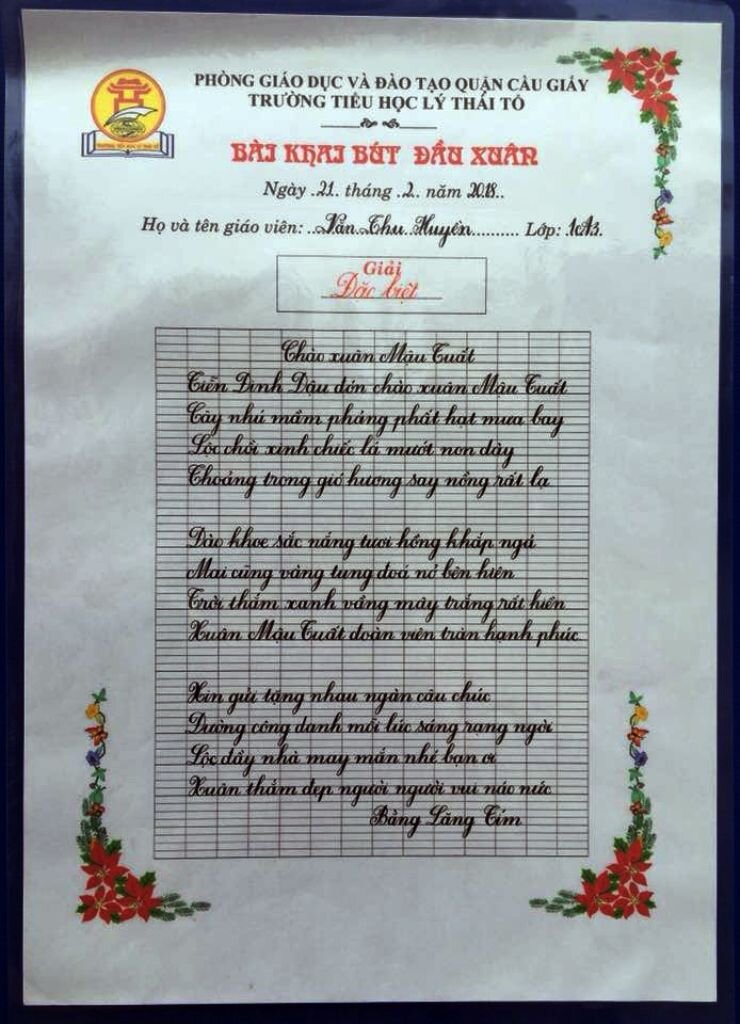 PHÒNG GIÁO DỤC VÀ ĐÀO TẠO QUẬN CẦU GIẤY
TRƯỜNG TIỂU HỌC LÝ THÁI TỔ
BÀI KHAI BÚT ĐẦU XUÂN
Ngày .21. tháng .2. năm 2018..
Họ và tên giáo viên: ..Văn Thu Huyền.......... Lớp: 1A3.
Giải
Đặc biệt
Chào xuân Mậu Tuất
Tiễn Đinh Dậu đón chào xuân Mậu Tuất
Cây nhú mầm phảng phất hạt mưa bay
Lộc chồi xinh chiếc lá mướt non dày
Thoảng trong gió hương say nồng rất lạ
Đào khoe sắc nắng tươi hồng khắp ngả
Mai cũng vàng tung đoá nở bên hiên
Trời thắm xanh vầng mây trắng rất hiền
Xuân Mậu Tuất đoàn viên tràn hạnh phúc
Xin gửi tặng nhau ngàn câu chúc
Đường công danh mỗi lúc sáng rạng ngời
Lộc đầy nhà may mắn nhé bạn ơi
Xuân thắm đẹp người người vui náo nức
Bằng Lăng Tím